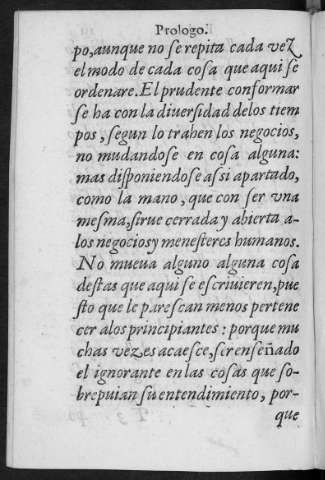 Prologo.
po, aunque no se repita cada vez
el modo de cada cosa que aqui se
ordenare. El prudente conformar
se ha con la diuersidad delos tiem
pos, segun lo trahen los negocios,
no mudandose en cosa alguna:
mas disponiendose assi apartado,
como la mano, que con ser vna
mesma, sirue cerrada y abierta a-
los negocios y menesteres humanos.
No mueua alguno alguna cosa
destas que aqui se escriuieren, pue
sto que le parescan menos pertene
cer alos principiantes: porque mu
chas vezes acaesce, ser enseñado
el ignorante en las cosas que so-
brepuian su entendimiento, por-
que